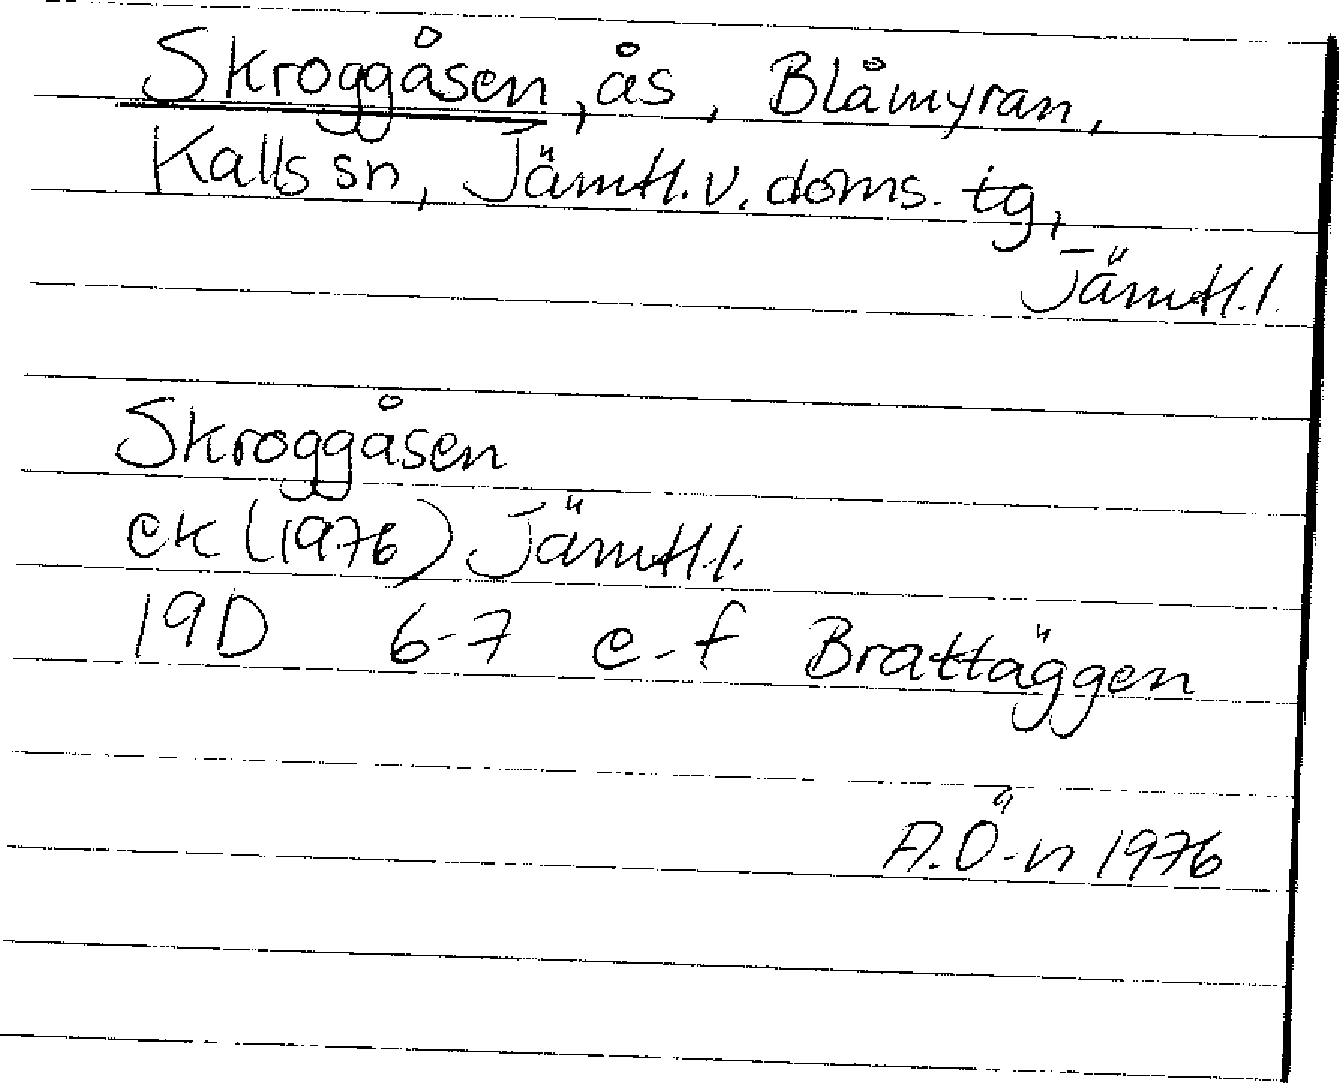 Skroggåsen, ås, Blåmyran,
Kalls sn, Jämtl. v. doms. tg,
Jämtl. l.
Skroggåsen
ek (1976) Jämtl. l.
19D 6-7 e-f Brattäggen
A.Ö-n 1976